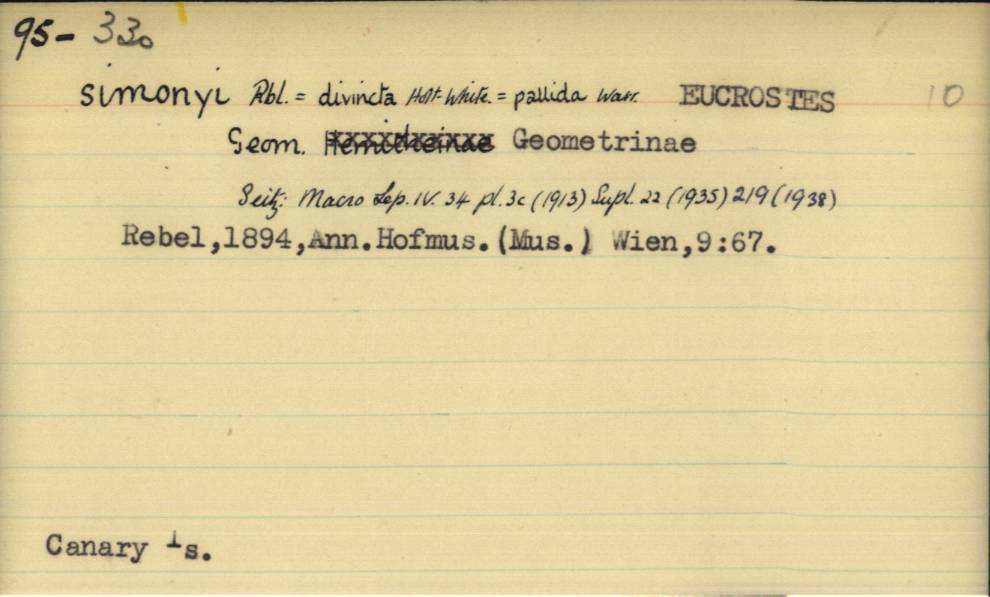 95- 330
simonyi Rbl. = divincta Holt-White. = pallida Warr. EUCROSTES 10
Geom. Hemitheinae Geometrinae
Seitz: Macro Lep. IV. 34 pl. 3c (1913) Supl. 22 (1935) 219 (1938)
Rebel,1894,Ann.Hofmus.(Mus.) Wien,9:67.
Canary Is.